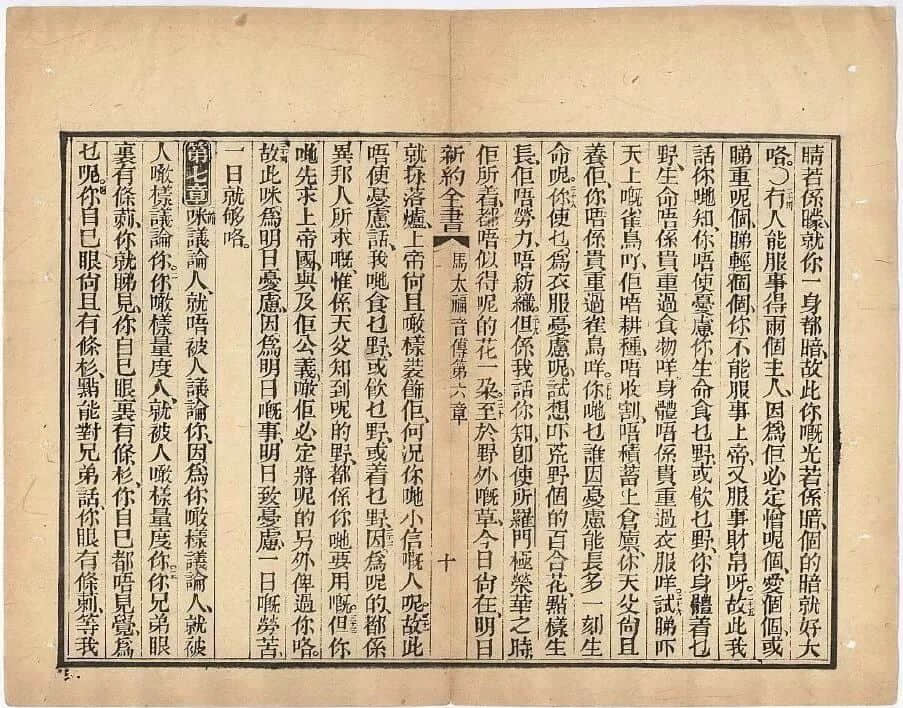 睛若係矇、就你一身都暗、故此你嘅光若係暗、個的暗就好大
咯。〇二十四冇人能服事得兩個主人、因爲佢必定憎呢個、愛個個、或
睇重呢個、睇輕個個、你不能服事上帝、又服事財帛呀。二十五故此我
話你哋知、你唔使憂慮你生命食乜野、或飲乜野、你身體着乜
野、生命唔係貴重過食物咩、身體唔係貴重過衣服咩。二十六試睇吓
天上嘅雀鳥吖、佢唔耕種、唔收割、唔積蓄上倉廩、你天父尙且
養佢、你唔係貴重過雀鳥咩。二十七你哋乜誰因憂慮能長多一刻生
命呢。二十八你使乜爲衣服憂慮呢、試想吓荒野個的百合花、點樣生
長、佢唔勞力、唔紡織。二十九但係我話你知、卽使所羅門極榮華之時、
佢所着都唔似得呢的花一朶。三十至於野外嘅草、今日尙在、明日
新約全書 馬太福音傳第六章 十
就㨆落爐、上帝尙且噉樣裝飾佢、何況你哋小信嘅人呢。三十一故此
唔使憂慮話、我哋食乜野、或飲乜野、或着乜野。三十二因爲呢的、都係
異邦人所求嘅、惟係天父知到呢的野、都係你哋要用嘅。三十三但你
哋先求上帝國、與及佢公義、噉佢必定將呢的另外俾過你咯。
三十四故此咪爲明日憂慮、因爲明日嘅事、明日致憂慮、一日嘅勞苦、
一日就够咯。
第七章 一咪議論人、就唔被人議論你、因爲你噉樣議論人、就被
人噉樣議論你。二你噉樣量度人、就被人噉樣量度你。三你兄弟眼
裏有條莿、你就睇見、你自己眼裏有條杉、你自己都唔見覺、爲
乜呢。四你自己眼尙且有條杉、點能對兄弟話、你眼有條莿、等我